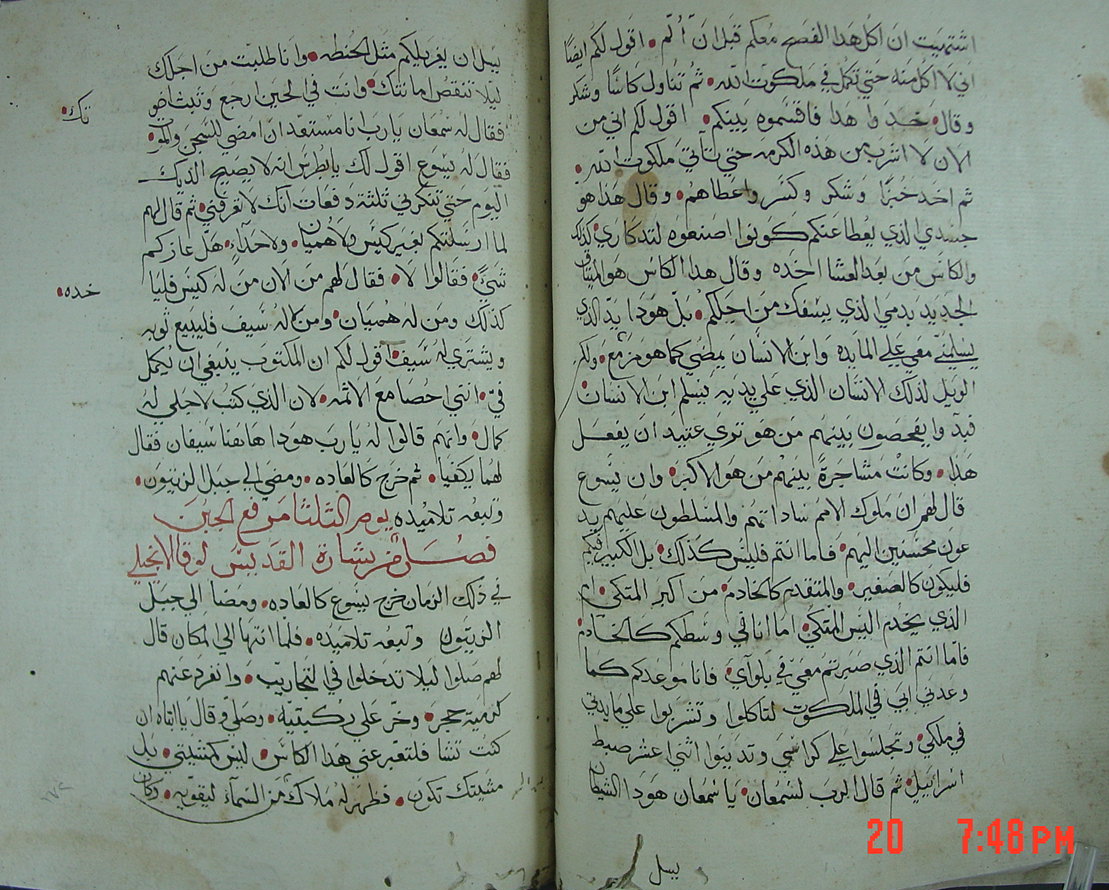 اشتهيت ان اكل هذا الفصح معكم قبل ان اُلّم • اقول لكم ايضًا
اني لا اكل منه حتي تكمل في ملكوت الله • ثم تناول كاسًا وشكر
وقال • خدوا هدا فاقتسموه بينكم • اقول لكم اني من
الان لا اشرب من هذه الكرمه حتي يأتي ملكوت الله •
ثم اخد خُبزًا وشكر وكسر واعطاهم • وقال هذا هو
جسدي الذي يعُطا عنكم كونوا اصنعوه لتدكاري • كذلك
والكاس من بعد العشا اخده وقال هدا الكاس هو الميثاق
الجديد بدمي الذي يسفك من اجلكم • بل هودا يد الذي
يسلمني معي علي المايده وابن الانسان يمضي كما هو مزمع • ولكن
الويل لدلك الانسان الذي علي يديه يسلم ابن الانسان •
فبدوا يفحصون بينهم من هو تري عتيد ان يفعل
هدا • وكانت مشاجرةً بينهم من هو الاكبر • وان يسوع
قال لهم ان ملوك الامم ساداتهم والمسلطون عليهم يد
عون محسنين اليهم • فاما انتم فليس كدلك • بل الكبير فيكم
فليكون كالصغير • والمتقدم كالخادم • من اكبر المتكي ام
الذي يخدم اليس المتكي • اما انا في وسطكم كالخادم
فاما انتم الذي صبرتم معي في بلواي • فانا موعدكم كما
وعدني ابي في الملكوت لتاكلوا وتشربوا علي مايدتي
في ملكي • وتجلسوا علي كراسي وتدينوا اثني عشر صبط
اسراييل • ثم قال الرب لسمعان • يا سمعان هودا الشيطان
يسل
يسل ان يغربلكم مثل الحنطه • وانا طلبت من اجلك
ليلا تنقص امانتك • وانت في الحين ارجع وتبت اخو
تك •
فقال له سمعان يا رب انا مستعد ان امضي للسجن والمو
فقال له يسوع اقول لك يا بطرس انه لا يصيح الديك
اليوم حتي تنكرني ثلثة دفعات انك لا تعرفني • ثم قال لهم
لما ارسلتكم بغير كيس ولا هميان • ولا حداء • هل عازكم
شيءٌ • فقالوا لا • فقال لهم من الان من له كيس فليا
خده •
كذلك ومن له هميان • ومن لا له سيف فليبيع ثوبه
ويشتري له سيف • اقول لكم ان المكتوب ينبغي ان يكمل
فيّ • انني احصا مع الاثمه • لان الذي كتب لاجلي له
كمال • وانهم قالوا له يا رب هودا هاهنا سيفان فقال
لهما يكفيا • ثم خرج كالعاده • ومضي الي جبل الزيتون •
وتبعه تلاميده يوم الثلثا من رفع الجبن
فصل من بشارة القديس لوقا الانجيلي
في ذلك الزمان خرج يسوع كالعاده • ومضا الي جبل
الزيتون وتبعه تلاميده • فلما انتها الي المكان قال
لهم صلوا ليلا تدخلوا في التجاريب • وانفرد عنهم
كرمية حجر • وخر علي ركبتيه • وصلي وقال يا ابتاه ان
كنت تشا فلتعبر عني هذا الكاس • ليس كمشيتي • بل
مشيتك تكون • فظهر له ملاك من السماء ليقويه • وكان
١٧٢
20 7:48 PM